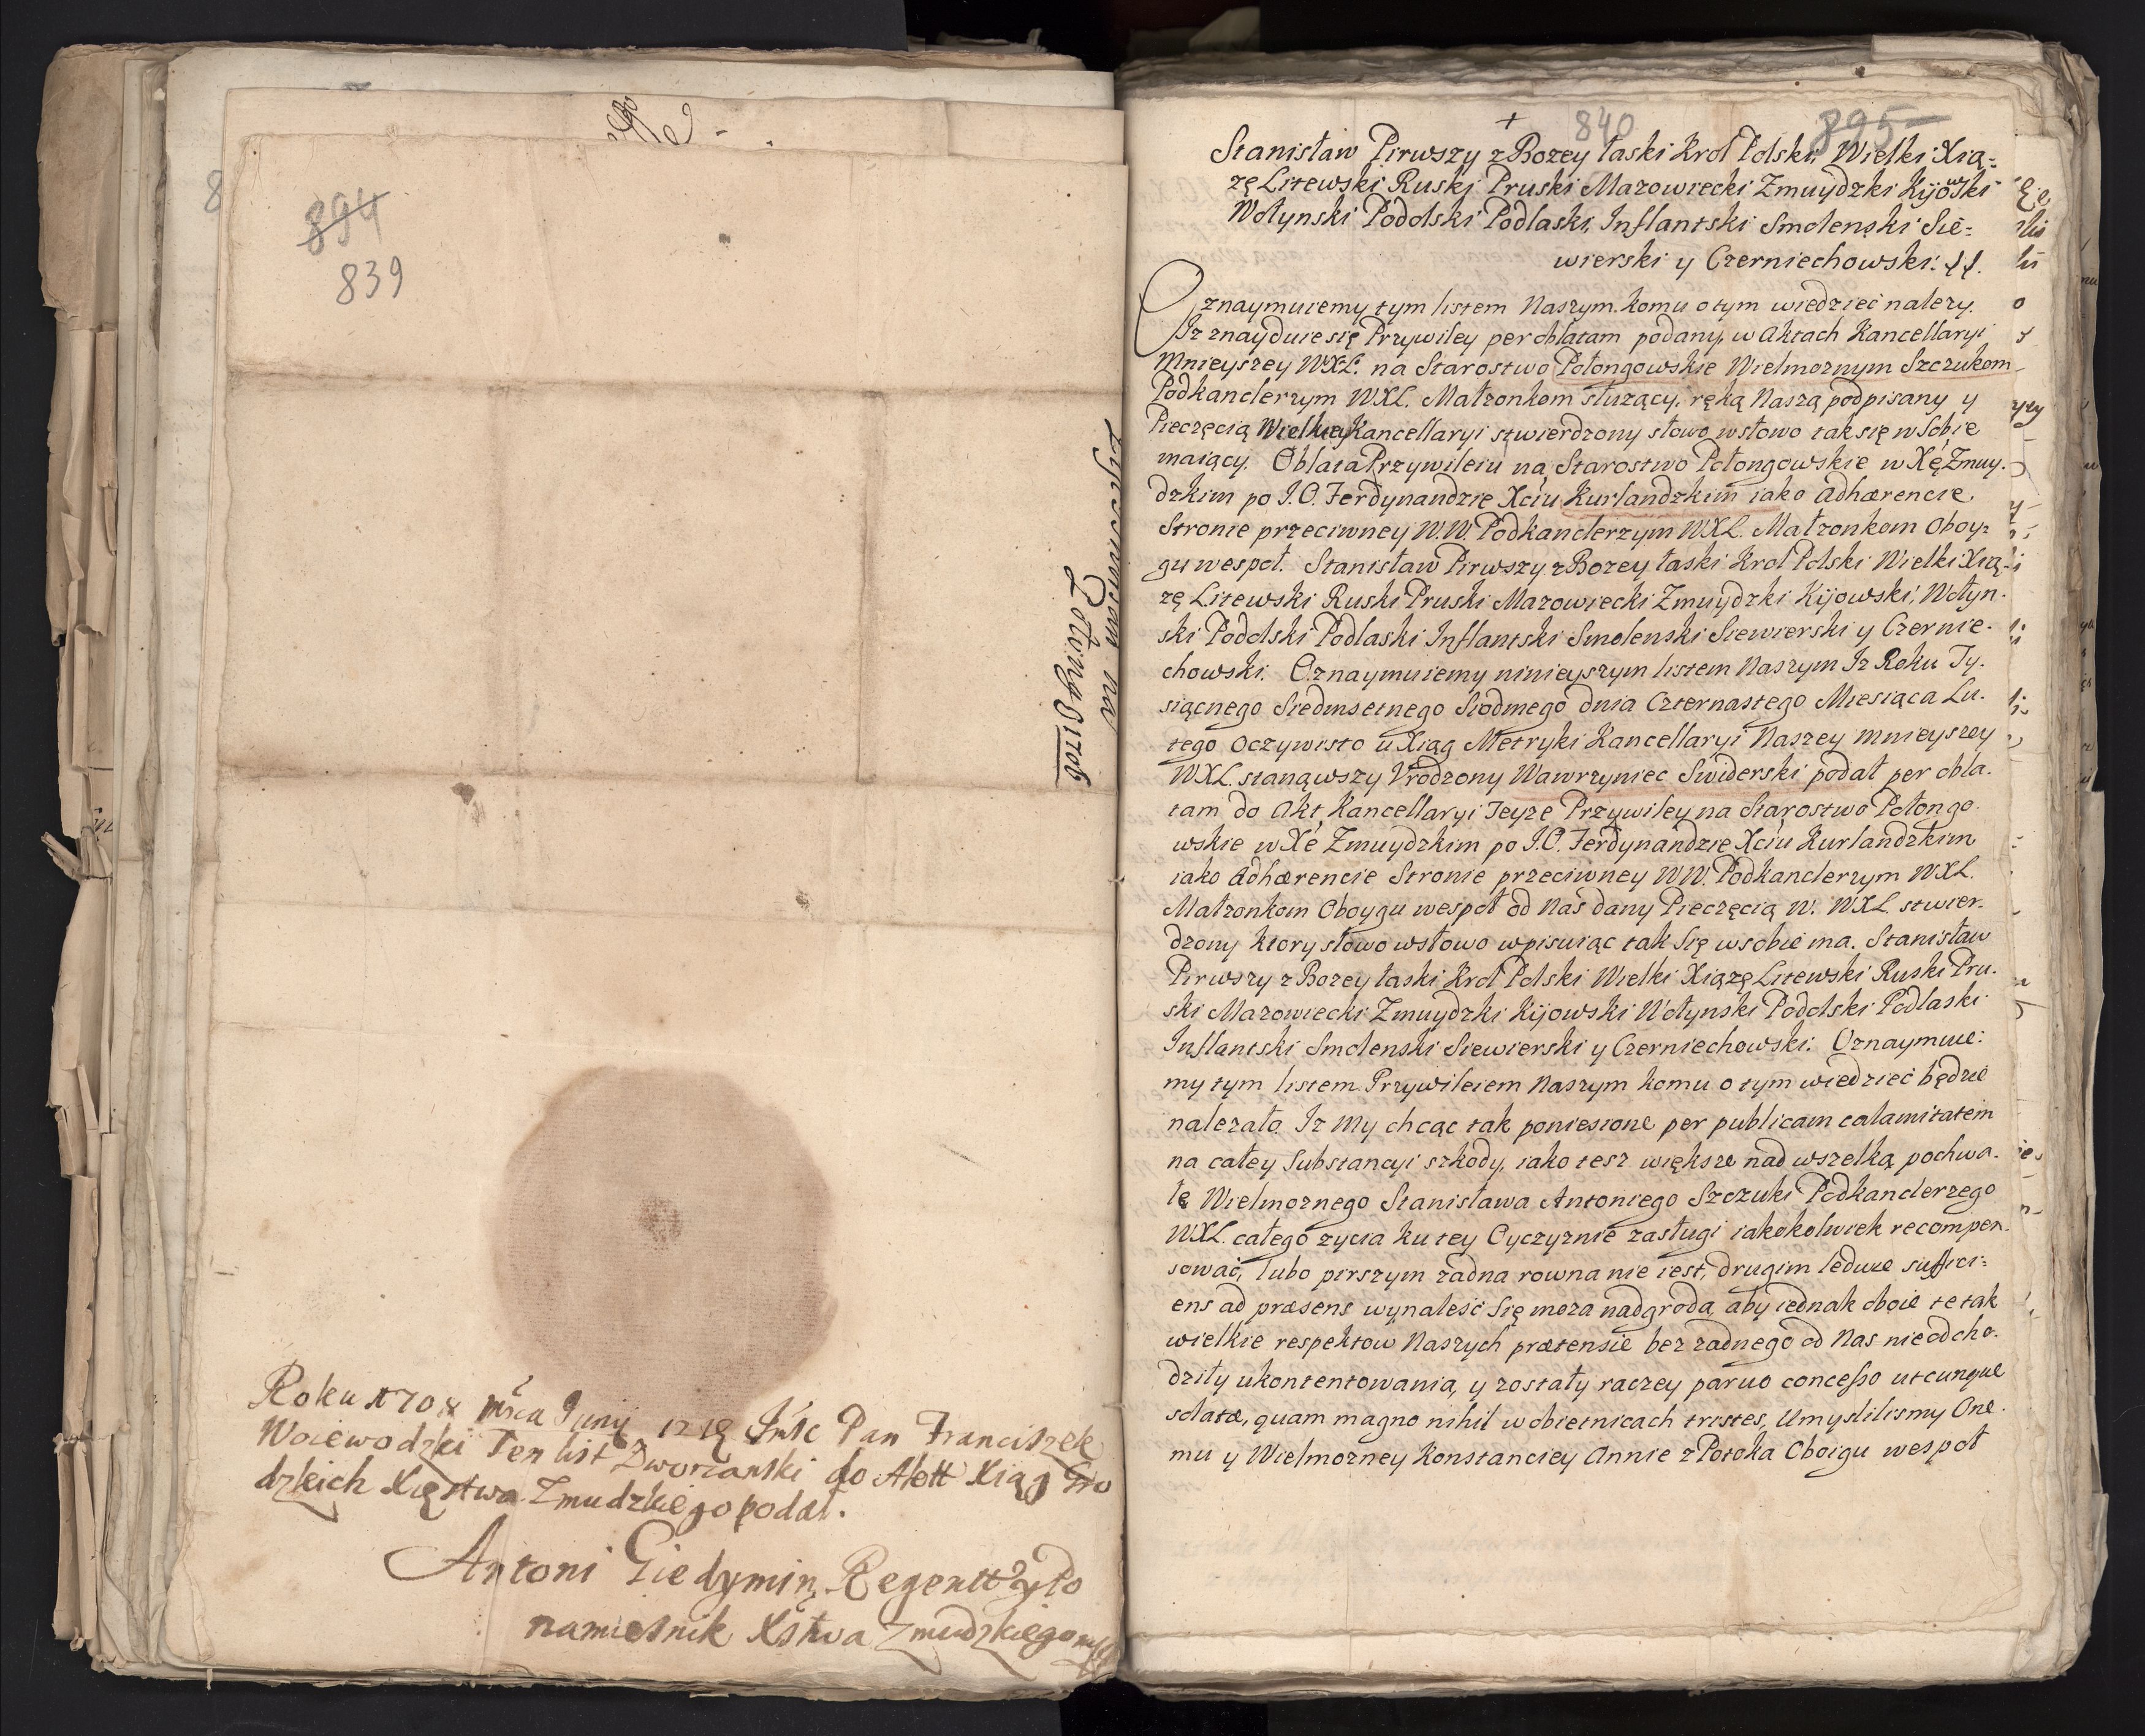 894
839
na
Połongę 1706
Roku 1708 mca Juny 12 Jmść Pan Franciszek
Woiewodzki Ten list Dworzanski do Aktt Xiąg Gro
dzkich Xięstwa Zmudzkiego podał.
Antoni Giedymin Regentt y Po
namiesnik Xstwa Zmudzkiego
840 895
Stanisław Pirwszy z Bozey łaski Krol Polski Wielki Xią=
zę Litewski Ruski Pruski Mazowiecki Zmuydzki Kijowski
Wołynski Podolski Podlaski, Inflantski Smolenski Sie=
wierski y Czerniechowski.
Oznaymuiemy tym listem Naszym. komu o tym wiedzieć nalezy.
Iz znayduie się Przywiley per oblatam podany, w Aktach Kancellaryi
Mnieyszey WXL. na Starostwo Połongowskie Wielmoznym Szczukom
Podkanclerzym WXL. Małzonkom słuzący, ręką Naszą podpisany y
Pieczęcią Wielkiey Kancellaryi stwierdzony słowo w słowo tak się w sobie
maiący. Oblata Przywileiu na Starostwo Połongowskie w Xę Zmuy.
dzkim po J.O. Ferdynandzie Xciu Kurlandzkim iako Adhærencie
Stronie przeciwney W.W. Podkanclerzym WXL. Małzonkom Oboy=
gu wespoł. Stanisław Pirwszy z Bozey łaski Krol Polski Wielki Xią=
zę Litewski Ruski Pruski Mazowiecki Zmuydzki Kijowski, Wołyn.
ski Podolski Podlaski Inflantski Smolenski Siewierski y Czernie.
chowski. Oznaymuiemy ninieyszym listem Naszym Iz Roku Ty.
siącnego Siedmsetnego Siodmego dnia Czternastego Miesiąca Lu.
tego Oczywisto u Xiąg Metryki Kancellaryi Naszey mnieyszey
WXL. stanąwszy Vrodzony Wawrzyniec Swiderski podał per obla.
tam do Akt Kancellaryi Teyze Przywiley na Starostwo Połongo.
wskie w Xé Zmuydzkim po J.O. Ferdynandzie Xciu Kurlandzkim
iako Adhærencie Stronie przeciwney WW. Podkanclerzym WXL.
Małzonkom Oboygu wespoł od Nas dany Pieczęcią W. WXL. stwier.
dzony ktory słowo w słowo wpisuiąc tak Się w sobie ma. Stanisław
Pirwszy z Bozey łaski Krol Polski Wielki Xiązę Litewski Ruski Pru.
ski Mazowiecki Zmuydzki Kijowski Wołynski Podolski Podlaski
Inflantski Smolenski Siewierski y Czerniechowski. Oznaymuie:
my tym listem Przywileiem Naszym komu o tym wiedzieć będzie
nalezało. Iz My chcąc tak poniesione per publicam calamitatem
na całey Substancyi szkody, iako tesz większe nad wszelką pochwa.
łę Wielmoznego Stanisława Antoniego Szczuki Podkanclerzego
WXL. całego zycia ku tey Oyczyznie zasługi iakokolwiek recompen.
sować, lubo pirszym zadna rowna nie iest, drugim ledwie suffici=
ens ad præsens wynaleść Się moza nadgroda, aby iednak oboie te tak
wielkie respektow Naszych prætensie bez zadnego od Nas nieodcho.
dziły ukontentowania, y zostały raczey paruo concesso utcunque
solatæ, quam magno nihil w obietnicach tristes, Umyslilismy One.
mu y Wielmozney Konstanciey Annie z Potoka Oboigu wespoł